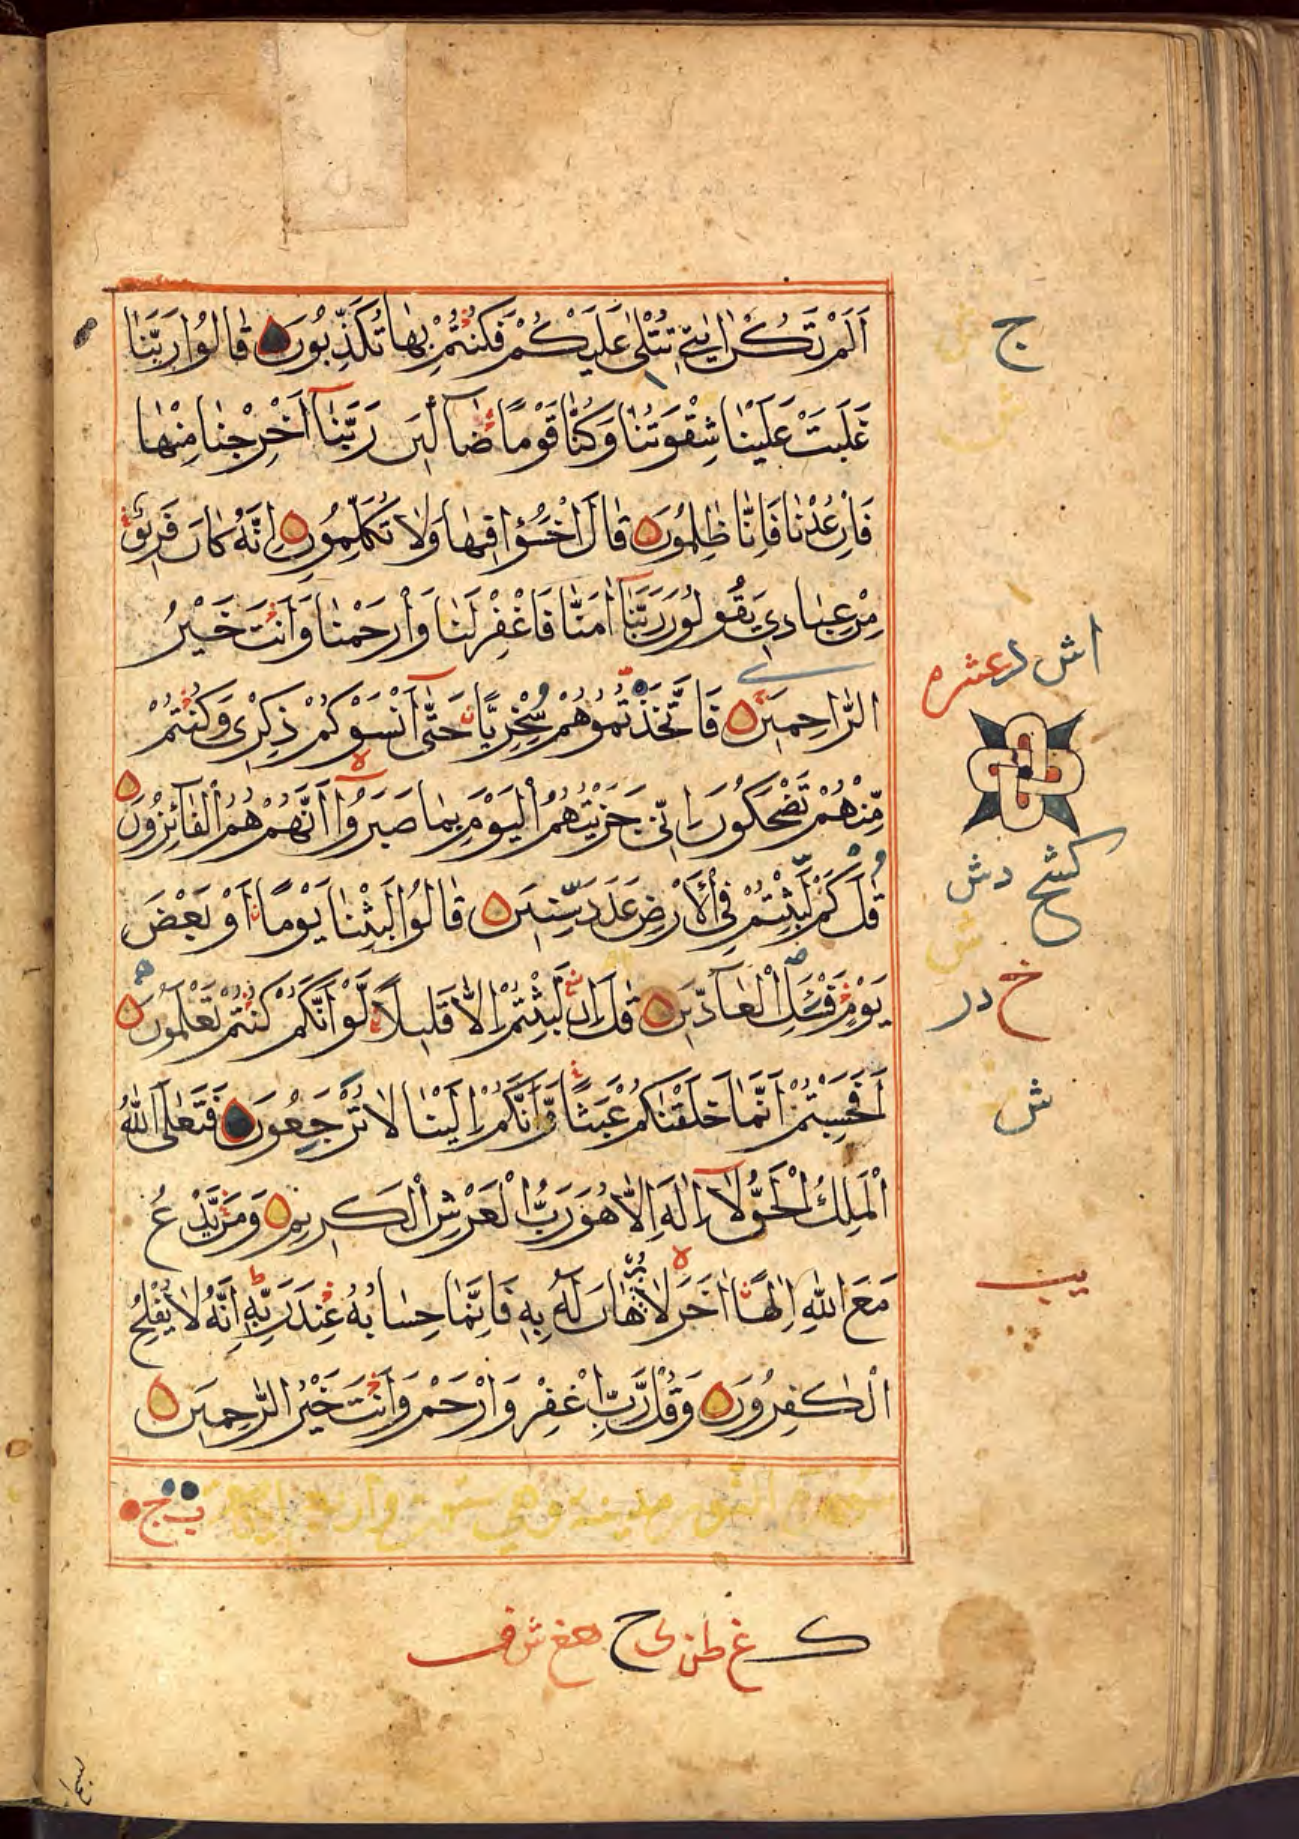 اَلَمْ تَكُنْ اٰيٰتِيْ تُتْلٰى عَلَيْكُمْ فَكُنْتُمْ بِهَا تُكَذِّبُوْنَ قَالُوْا رَبَّنَا
غَلَبَتْ عَلَيْنَا شِقْوَتُنَا وَكُنَّا قَوْمًا ضَآلِّيْنَ رَبَّنَآ اَخْرِجْنَا مِنْهَا
فَاِنْ عُدْنَا فَاِنَّا ظٰلِمُوْنَ قَالَ اخْسَؤُا فِيْهَا وَلَا تُكَلِّمُوْنِ اِنَّهُ كَانَ فَرِيْقٌ
مِنْ عِبَادِيْ يَقُوْلُوْنَ رَبَّنَآ اٰمَنَّا فَاغْفِرْ لَنَا وَارْحَمْنَا وَاَنْتَ خَيْرُ
الرَّاحِمِيْنَ فَاتَّخَذْتُمُوْهُمْ سِخْرِيًّا حَتّٰى اَنْسَوْكُمْ ذِكْرِيْ وَكُنْتُمْ
مِّنْهُمْ تَضْحَكُوْنَ اِنِّيْ جَزَيْتُهُمُ الْيَوْمَ بِمَا صَبَرُوْا اَنَّهُمْ هُمُ الْفَآئِزُوْنَ
قٰلَ كَمْ لَبِثْتُمْ فِي الْاَرْضِ عَدَدَ سِنِيْنَ قَالُوْا لَبِثْنَا يَوْمًا اَوْ بَعْضَ
يَوْمٍ فَسْئَلِ الْعَآدِّيْنَ قٰلَ اِنْ لَبِثْتُمْ اِلَّا قَلِيْلًا لَّوْ اَنَّكُمْ كُنْتُمْ تَعْلَمُوْنَ
اَفَحَسِبْتُمْ اَنَّمَا خَلَقْنٰكُمْ عَبَثًا وَّاَنَّكُمْ اِلَيْنَا لَا تُرْجَعُوْنَ فَتَعٰلَى اللّٰهُ
الْمَلِكُ الْحَقُّ لَآ اِلٰهَ اِلَّا هُوَ رَبُّ الْعَرْشِ الْكَرِيْمِ وَمَنْ يَّدْعُ
مَعَ اللّٰهِ اِلٰهًا اٰخَرَ لَا بُرْهَانَ لَهٗ بِهٖ فَاِنَّمَا حِسَابُهٗ عِنْدَ رَبِّهٖ اِنَّهٗ لَا يُفْلِحُ
الْكٰفِرُوْنَ وَقُلْ رَّبِّ اغْفِرْ وَارْحَمْ وَاَنْتَ خَيْرُ الرّٰحِمِيْنَ
ج
عشره
دش
خ در
ش
يب